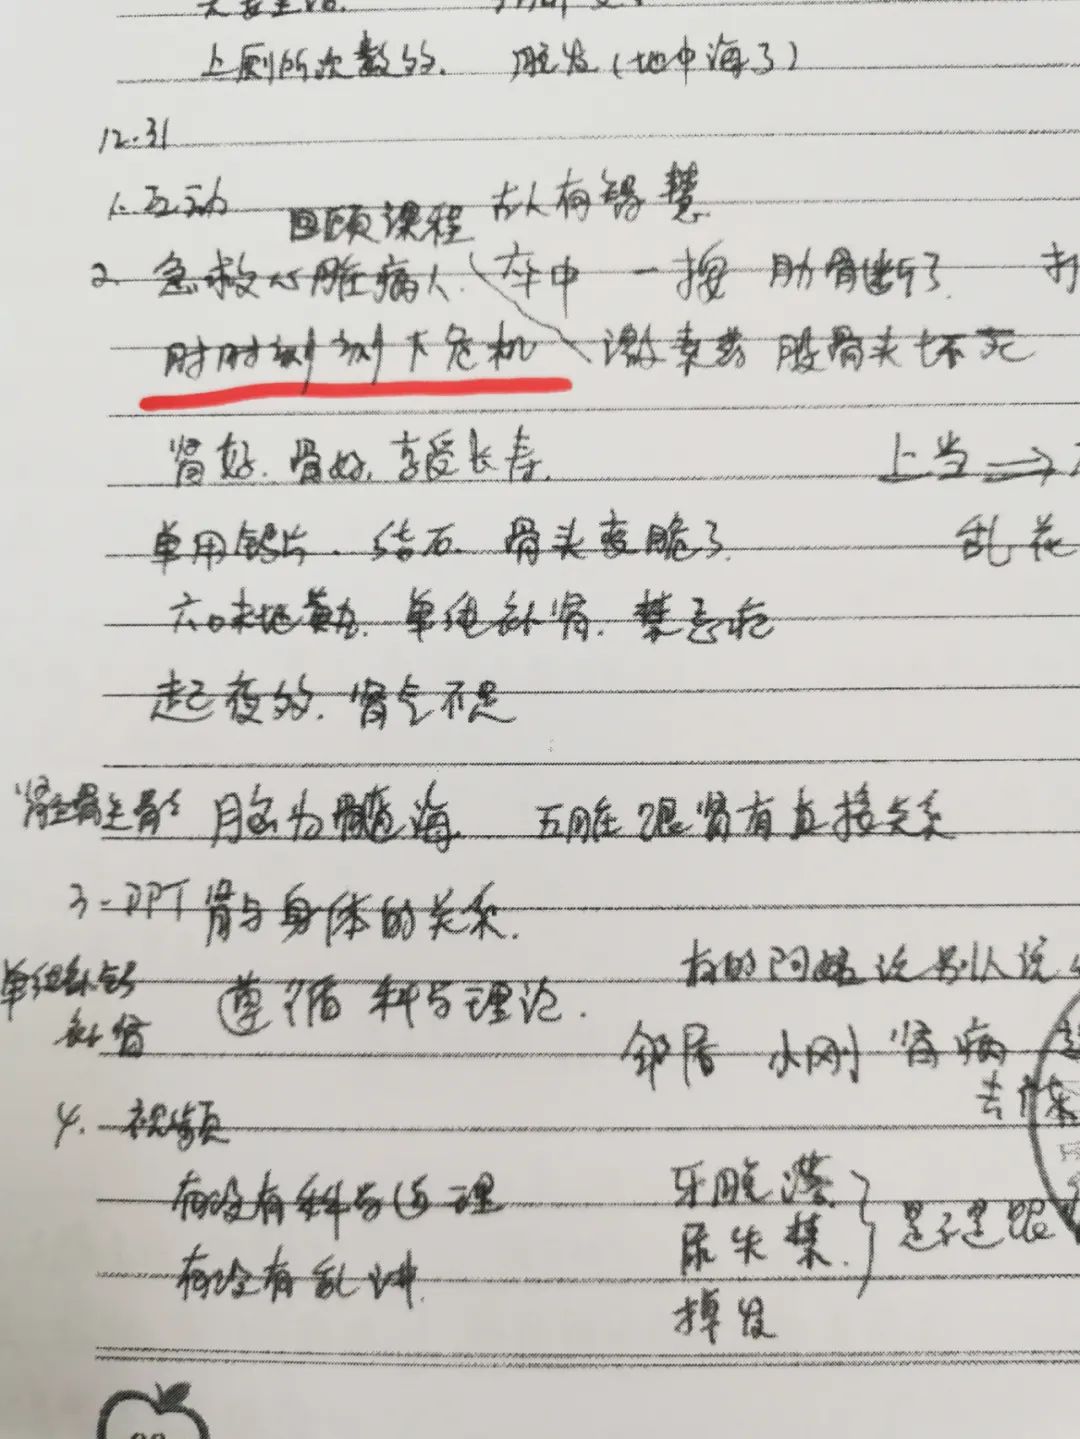 上厕所次数多. 脱发(地中海了)
12.31
1. 互动 回顾课程 古人有智慧
2. 急救心脏病人. 卒中 一按 肋骨断了
时时刻刻下危机 激素药 股骨头坏死
肾好. 骨好. 享受长寿. 上当 ⇒
单用钙片. 结石. 骨头变脆了. 乱花
六味地黄. 单纯补肾. 禁忌症
起夜多. 肾气不足
脑为髓海. 五脏跟肾有直接关系
3. PPT 肾与身体的关系.
单纯补钙 有的阿姨说别人说
补肾 遵循科学理论. 邻居 小刚 肾病
4. 视频
有没有科学道理 牙脱落
有没有乱讲. 尿失禁. 是不是跟
掉发